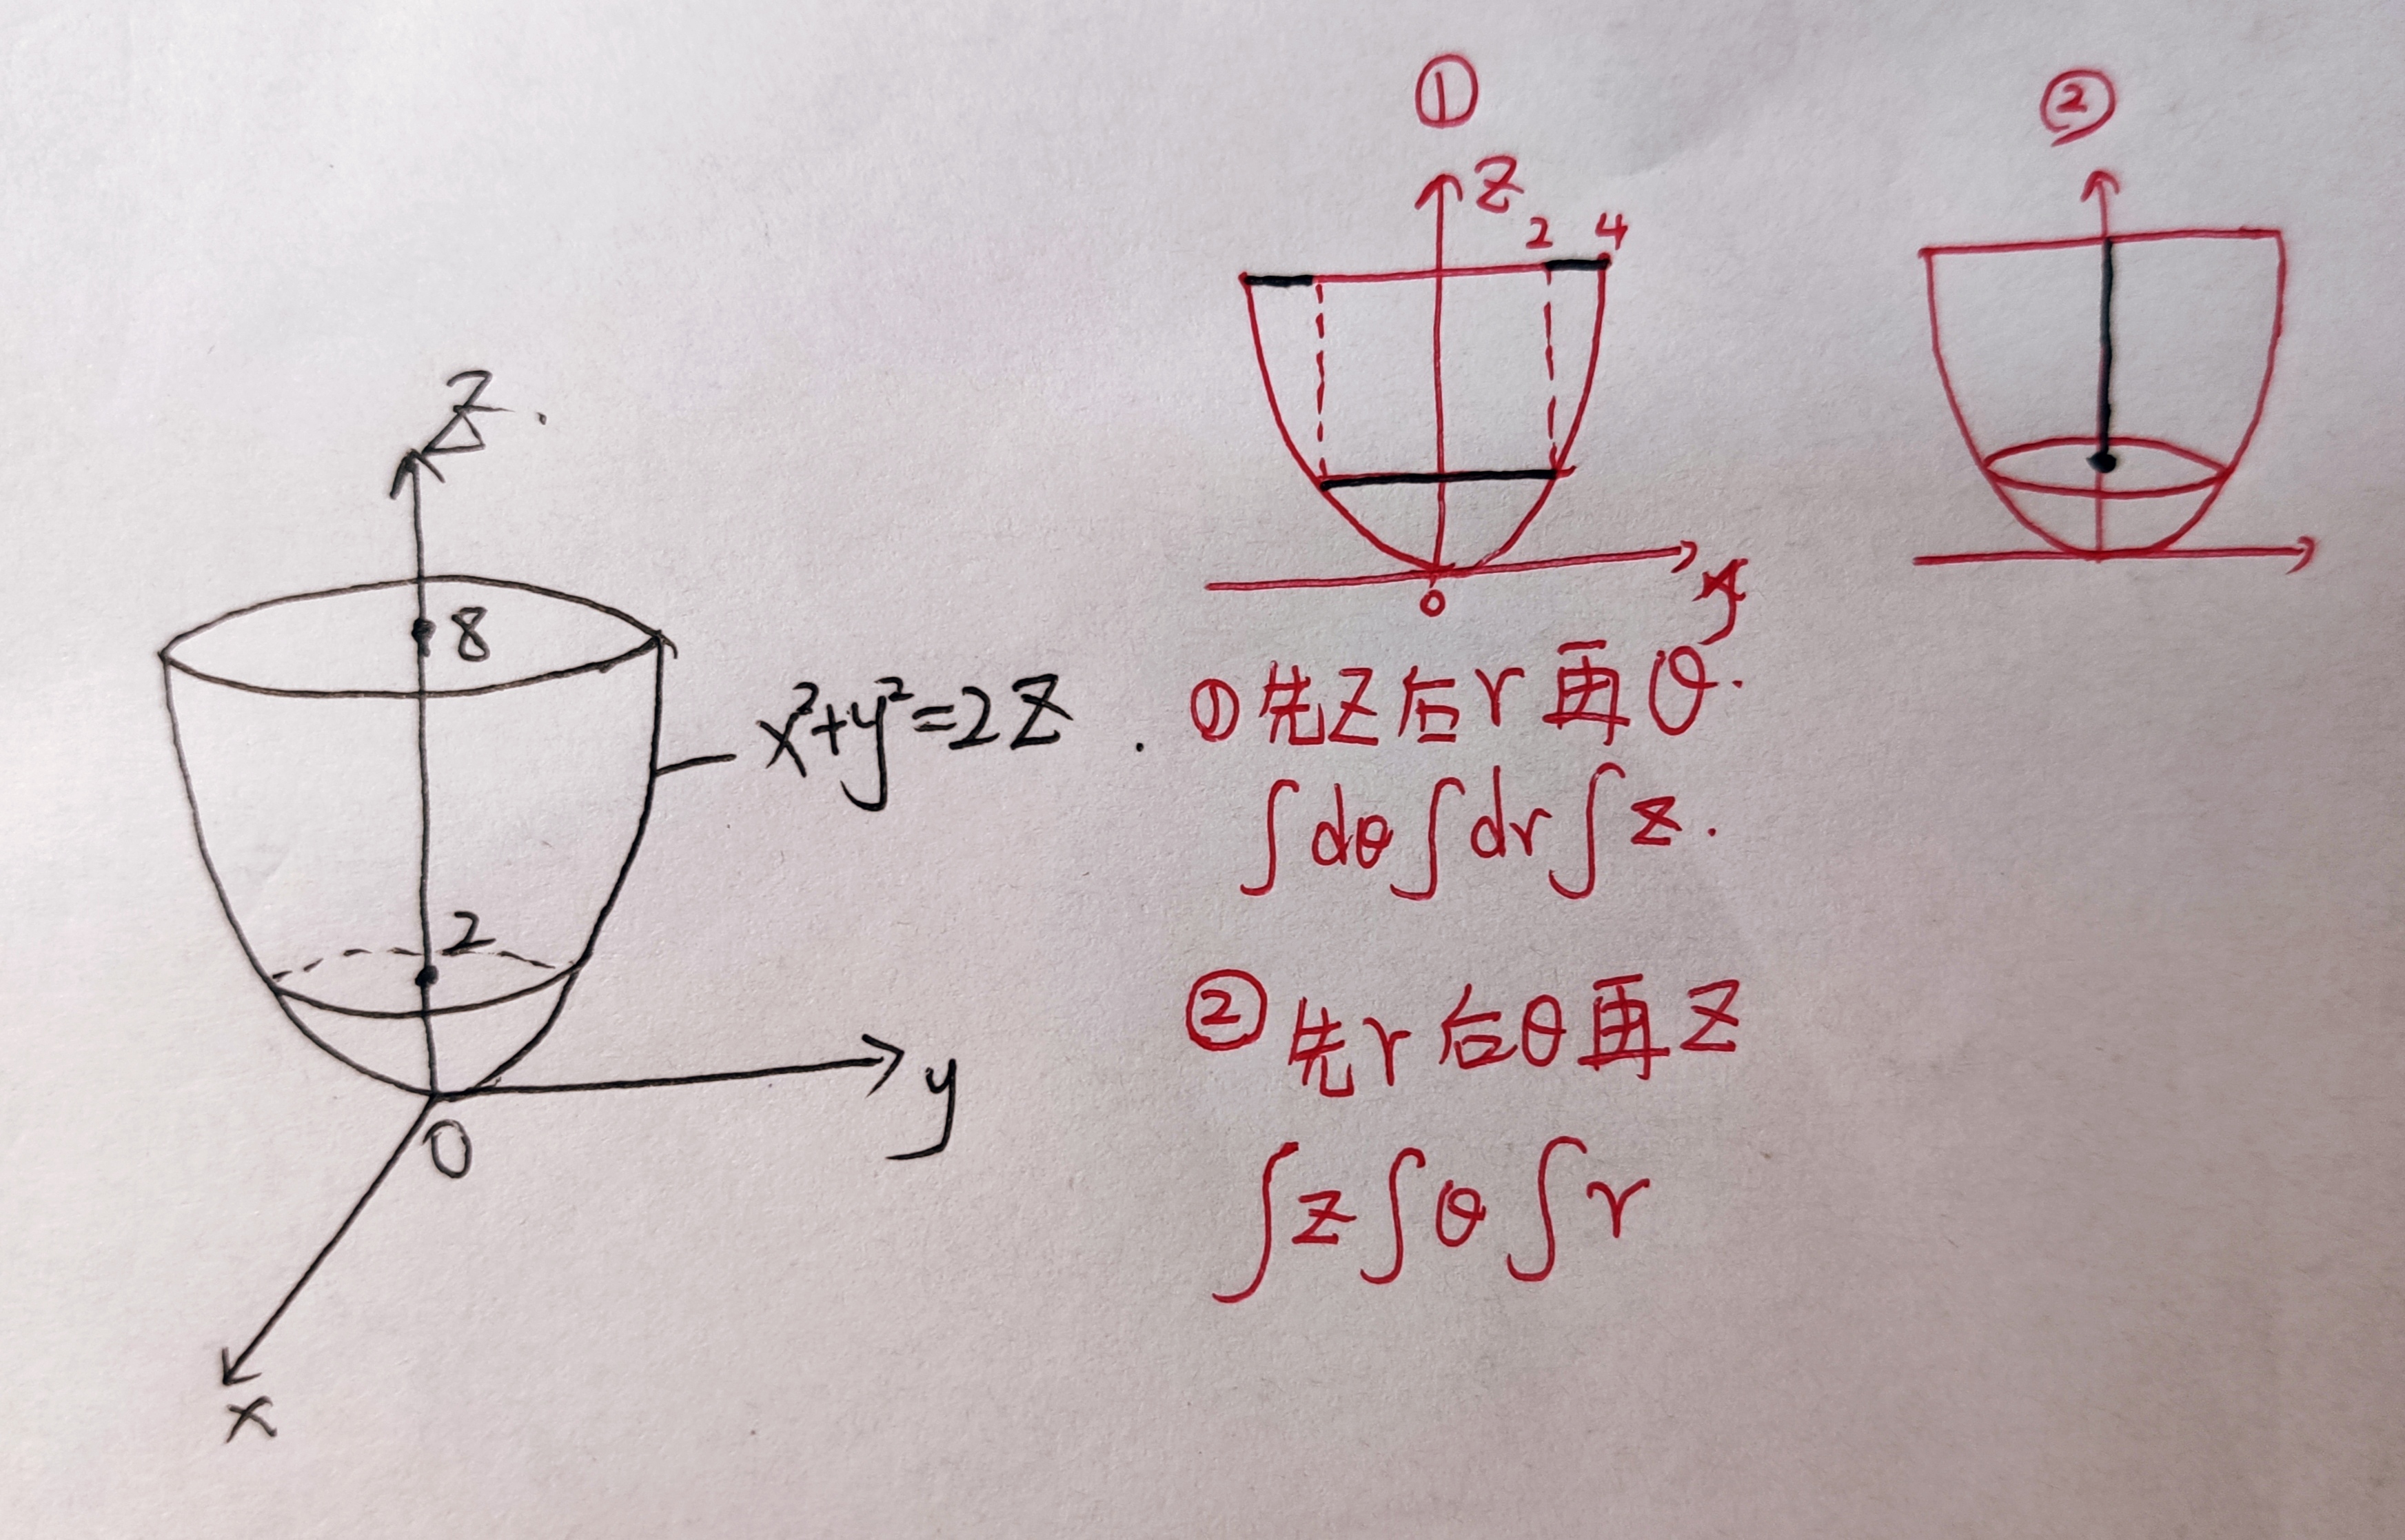 Z
8
x²+y²=2Z
2
y
O
x
①
Z
2 4
y
0
②
①先Z后r再θ.
∫dθ∫dr∫z.
②先r后θ再Z
∫z∫θ∫r